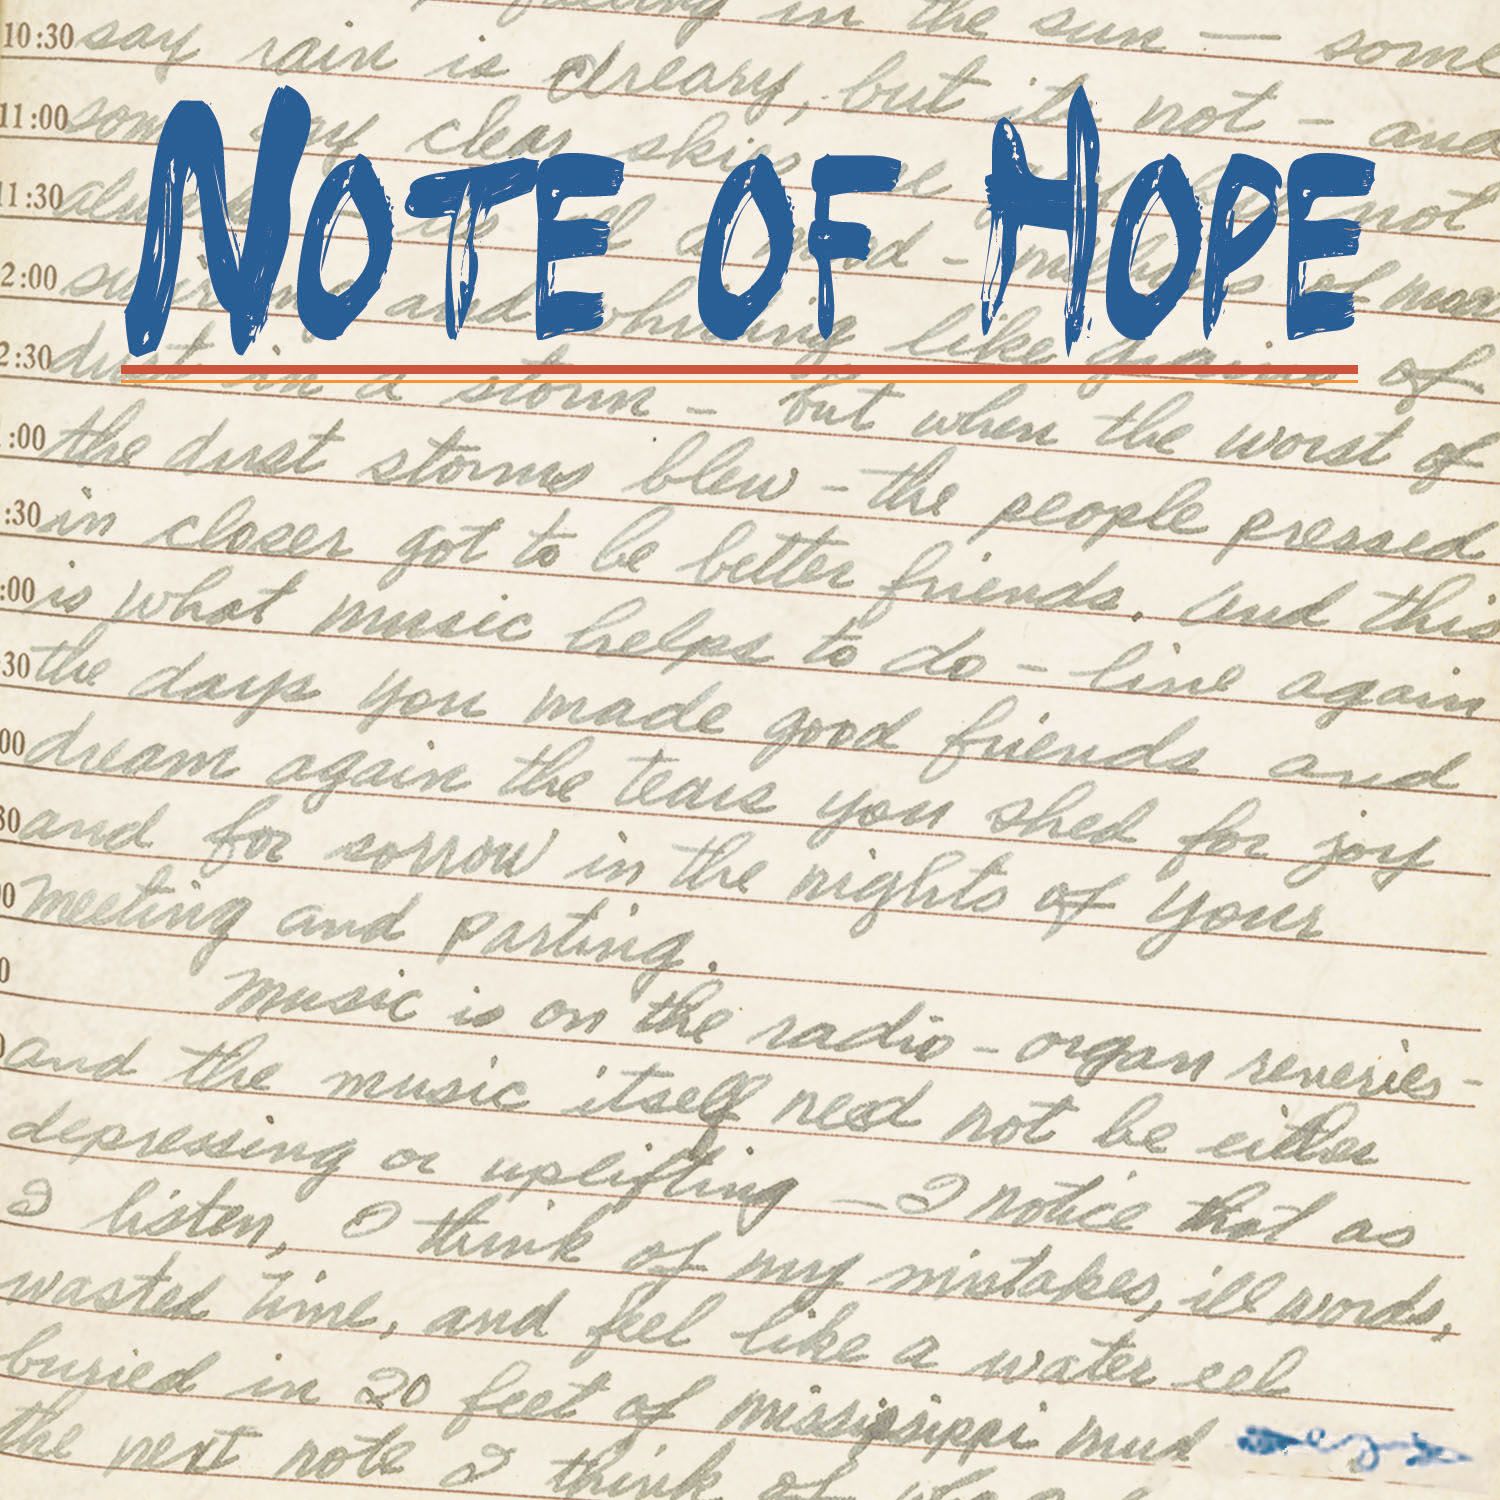 falling in the sun — some
10:30 say rain is dreary, but its not - and
11:00 some say clear skies
NOTE OF HOPE
11:30 not
2:00 swirling and whirling like grains of
2:30 dust in a storm - but when the worst of
:00 the dust storms blew - the people pressed
:30 in closer got to be better friends. and this
:00 is what music helps to do - live again
30 the days you made good friends and
00 dream again the tears you shed for joy
30 and for sorrow in the nights of your
00 meeting and parting.
0 music is on the radio - organ reveries -
and the music itself need not be either
depressing or uplifting — I notice that as
I listen, I think of my mistakes, ill words,
wasted time, and feel like a water eel
buried in 20 feet of mississippi mud
the next note I think of